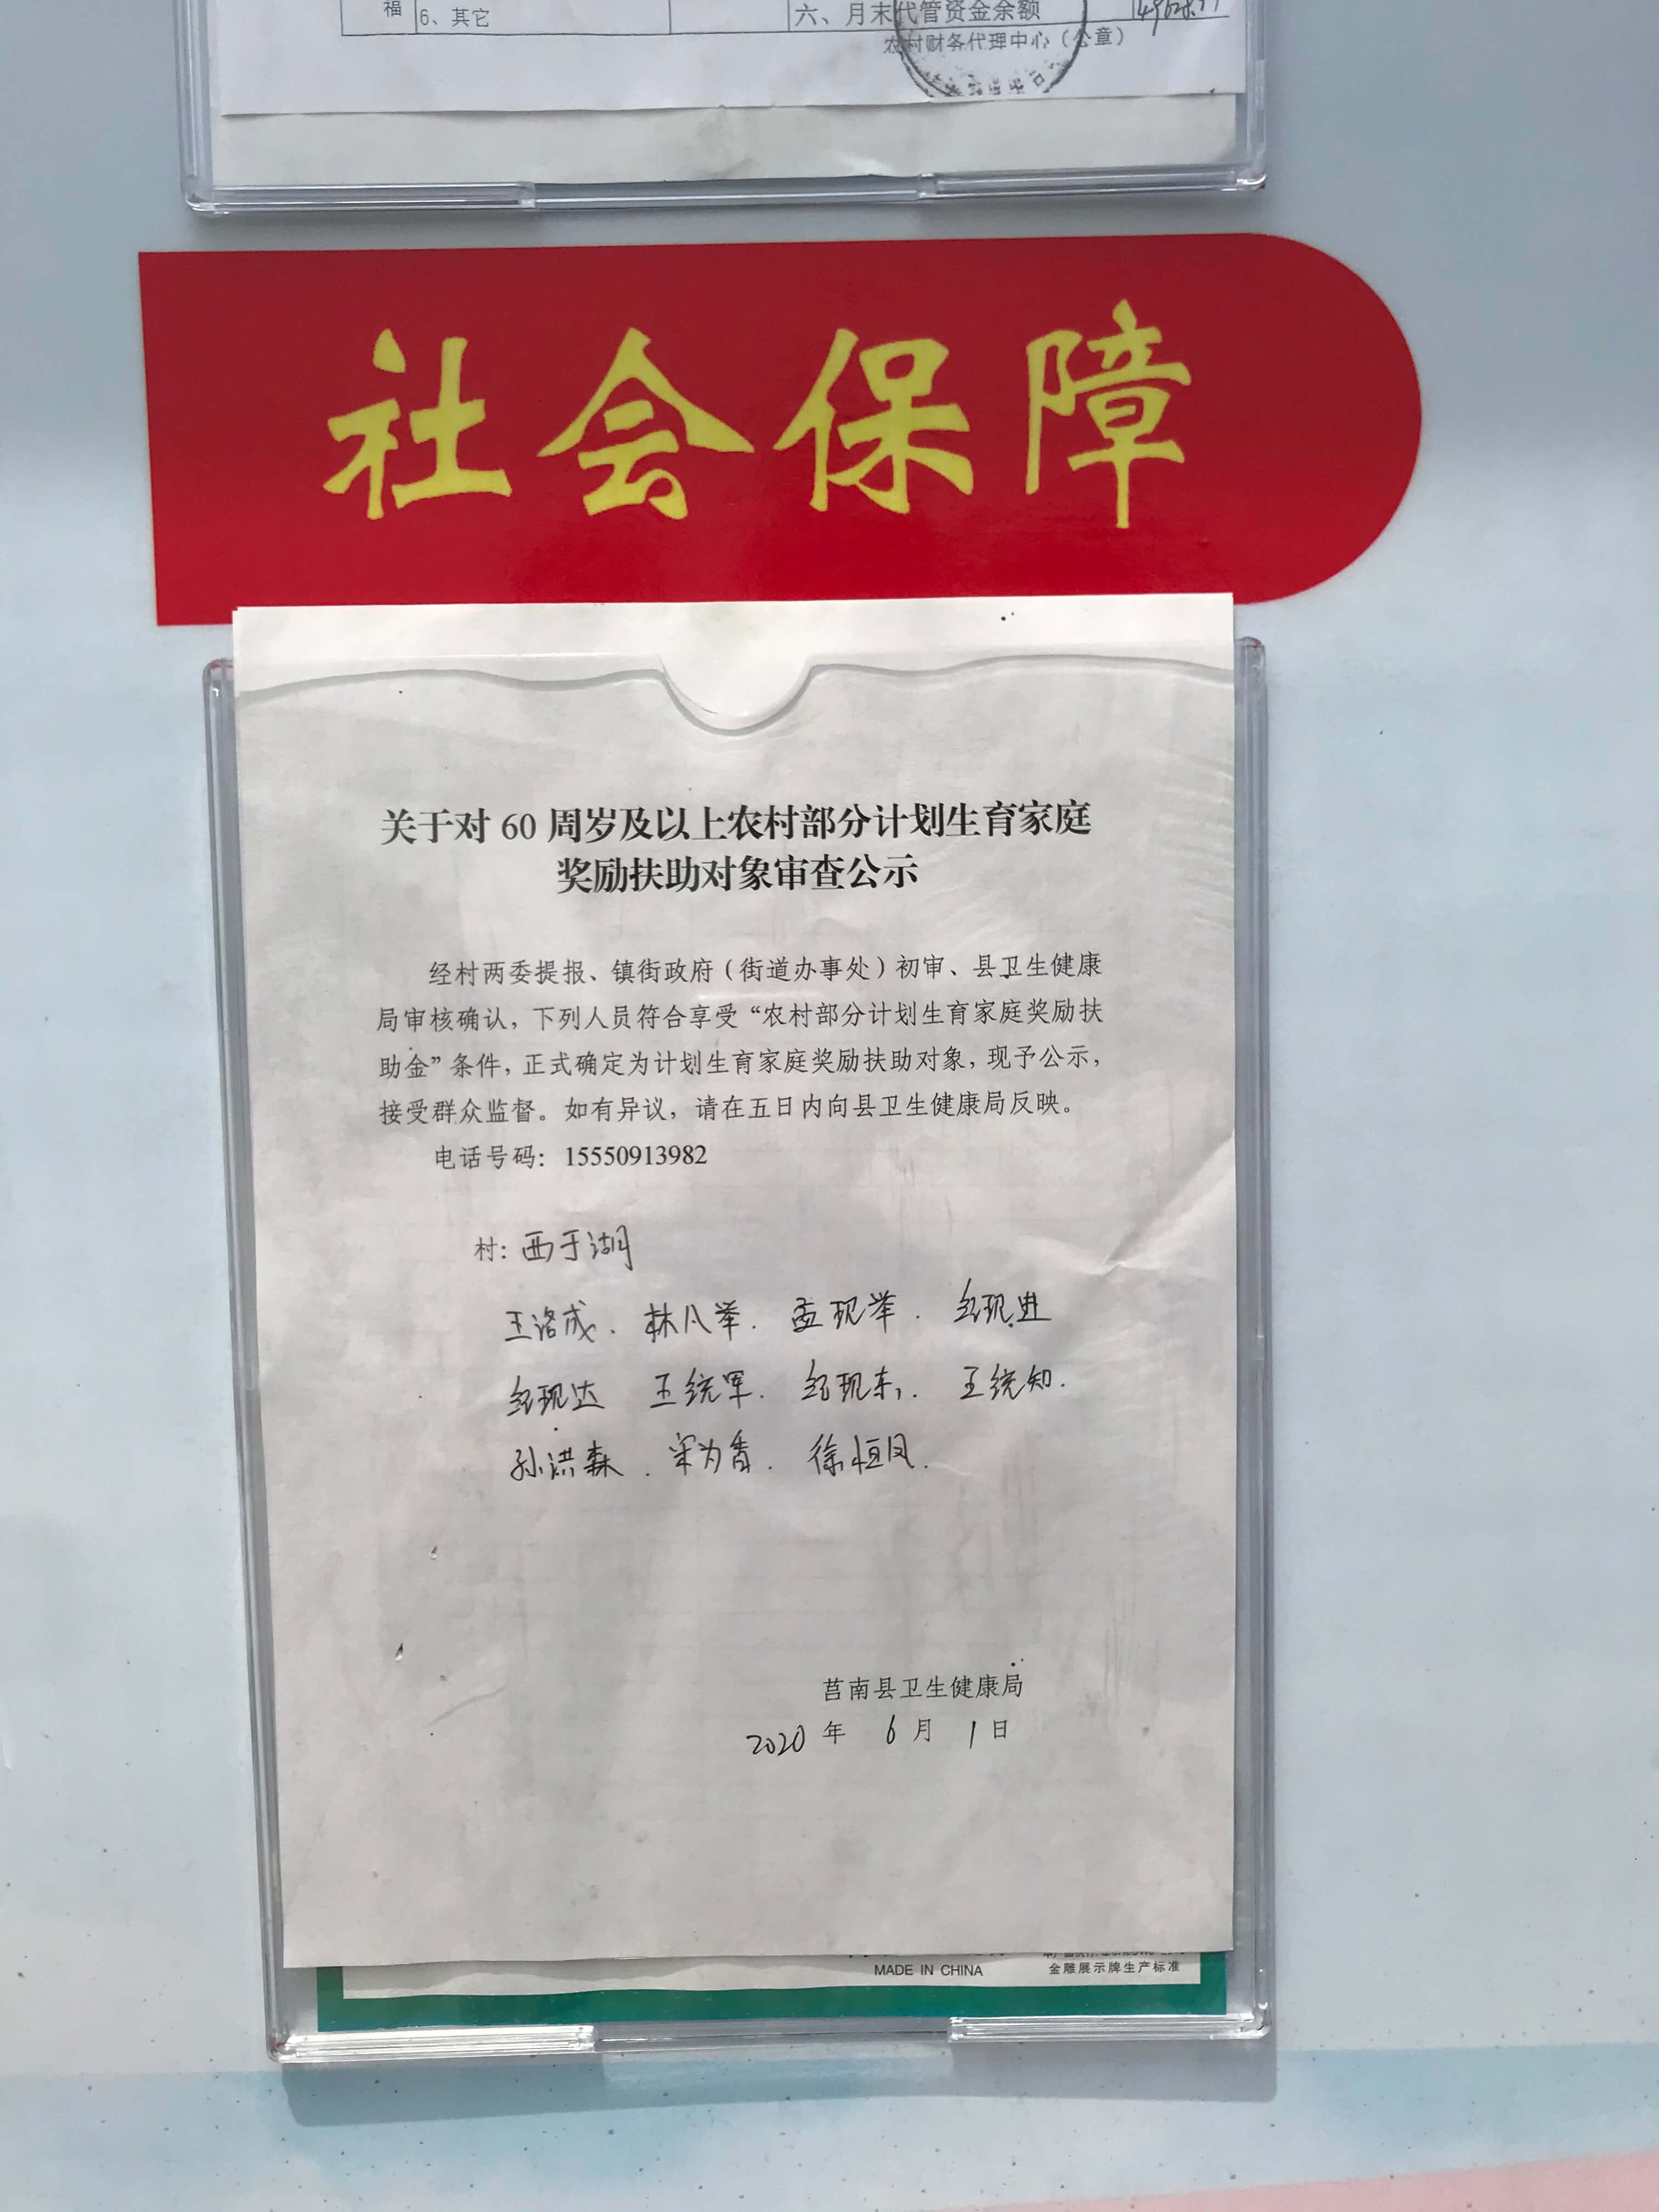 福 6、其它 六、月末代管资金余额
农村财务代理中心（公章）
社会保障
关于对 60 周岁及以上农村部分计划生育家庭
奖励扶助对象审查公示
经村两委提报、镇街政府（街道办事处）初审、县卫生健康
局审核确认，下列人员符合享受“农村部分计划生育家庭奖励扶
助金”条件，正式确定为计划生育家庭奖励扶助对象，现予公示，
接受群众监督。如有异议，请在五日内向县卫生健康局反映。
电话号码：15550913982
村：西于湖
王洛成、林八举、孟现举、纪现进
纪现达 王统军、纪现东、王统知、
孙洪森、宋为香、徐恒凤、
莒南县卫生健康局
2020 年 6 月 1 日
MADE IN CHINA 金雕展示牌生产标准